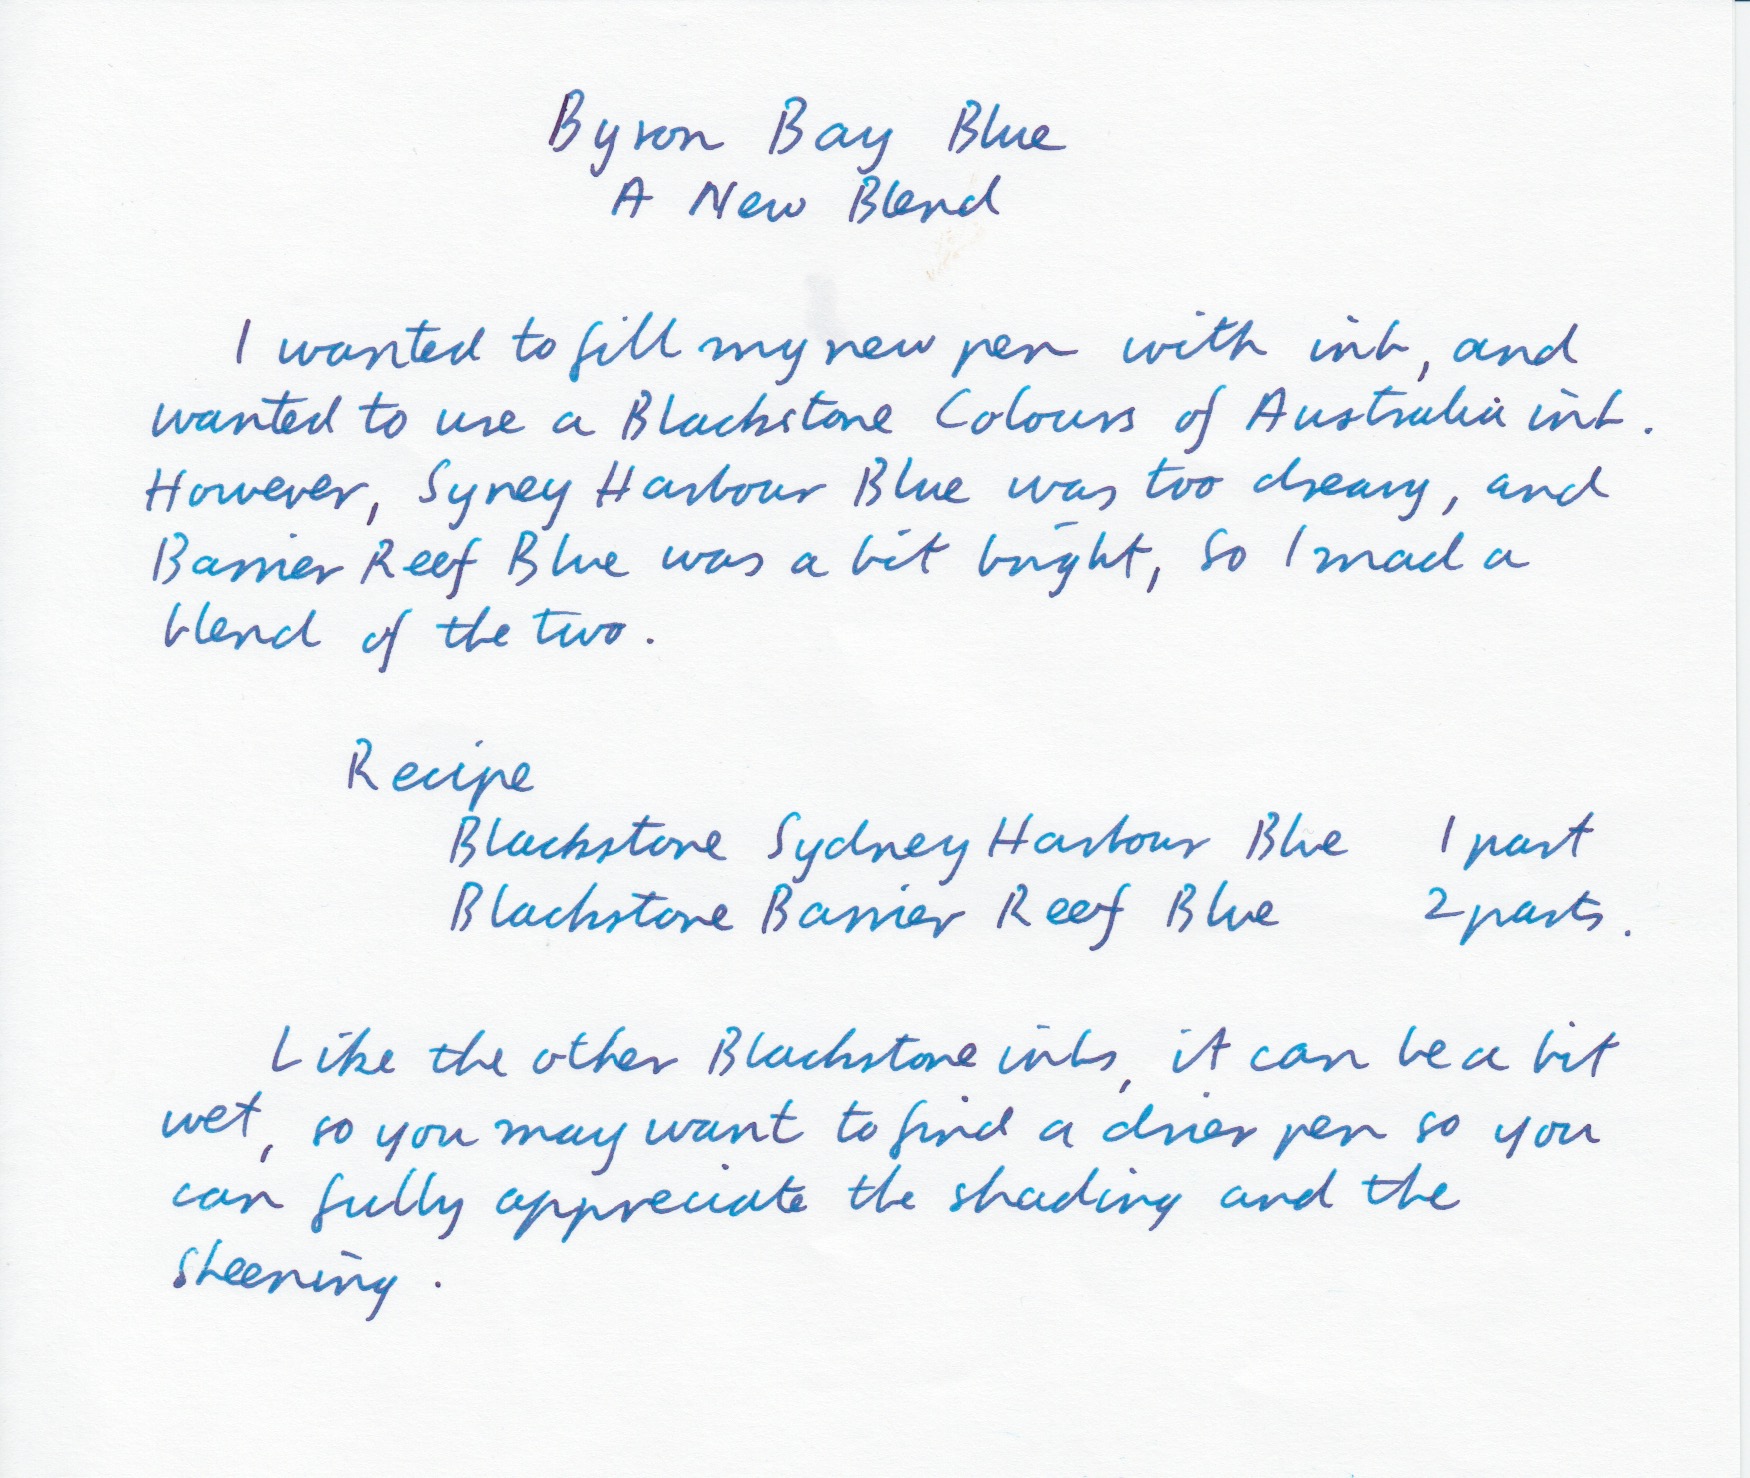 Byron Bay Blue
A New Blend
I wanted to fill my new pen with ink, and
wanted to use a Blackstone Colours of Australia ink.
However, Syney Harbour Blue was too dreary, and
Barrier Reef Blue was a bit bright, so I mad a
blend of the two.
Recipe
Blackstone Sydney Harbour Blue 1 part
Blackstone Barrier Reef Blue 2 parts.
Like the other Blackstone inks, it can be a bit
wet, so you may want to find a drier pen so you
can fully appreciate the shading and the
sheening.